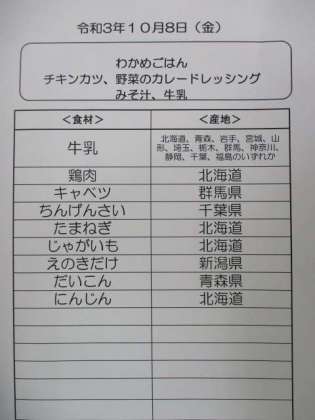 令和3年10月8日（金）
わかめごはん
チキンカツ、野菜のカレードレッシング
みそ汁、牛乳
＜食材＞ ＜産地＞
牛乳 北海道、青森、岩手、宮城、山
形、埼玉、栃木、群馬、神奈川、
静岡、千葉、福島のいずれか
鶏肉 北海道
キャベツ 群馬県
ちんげんさい 千葉県
たまねぎ 北海道
じゃがいも 北海道
えのきだけ 新潟県
だいこん 青森県
にんじん 北海道